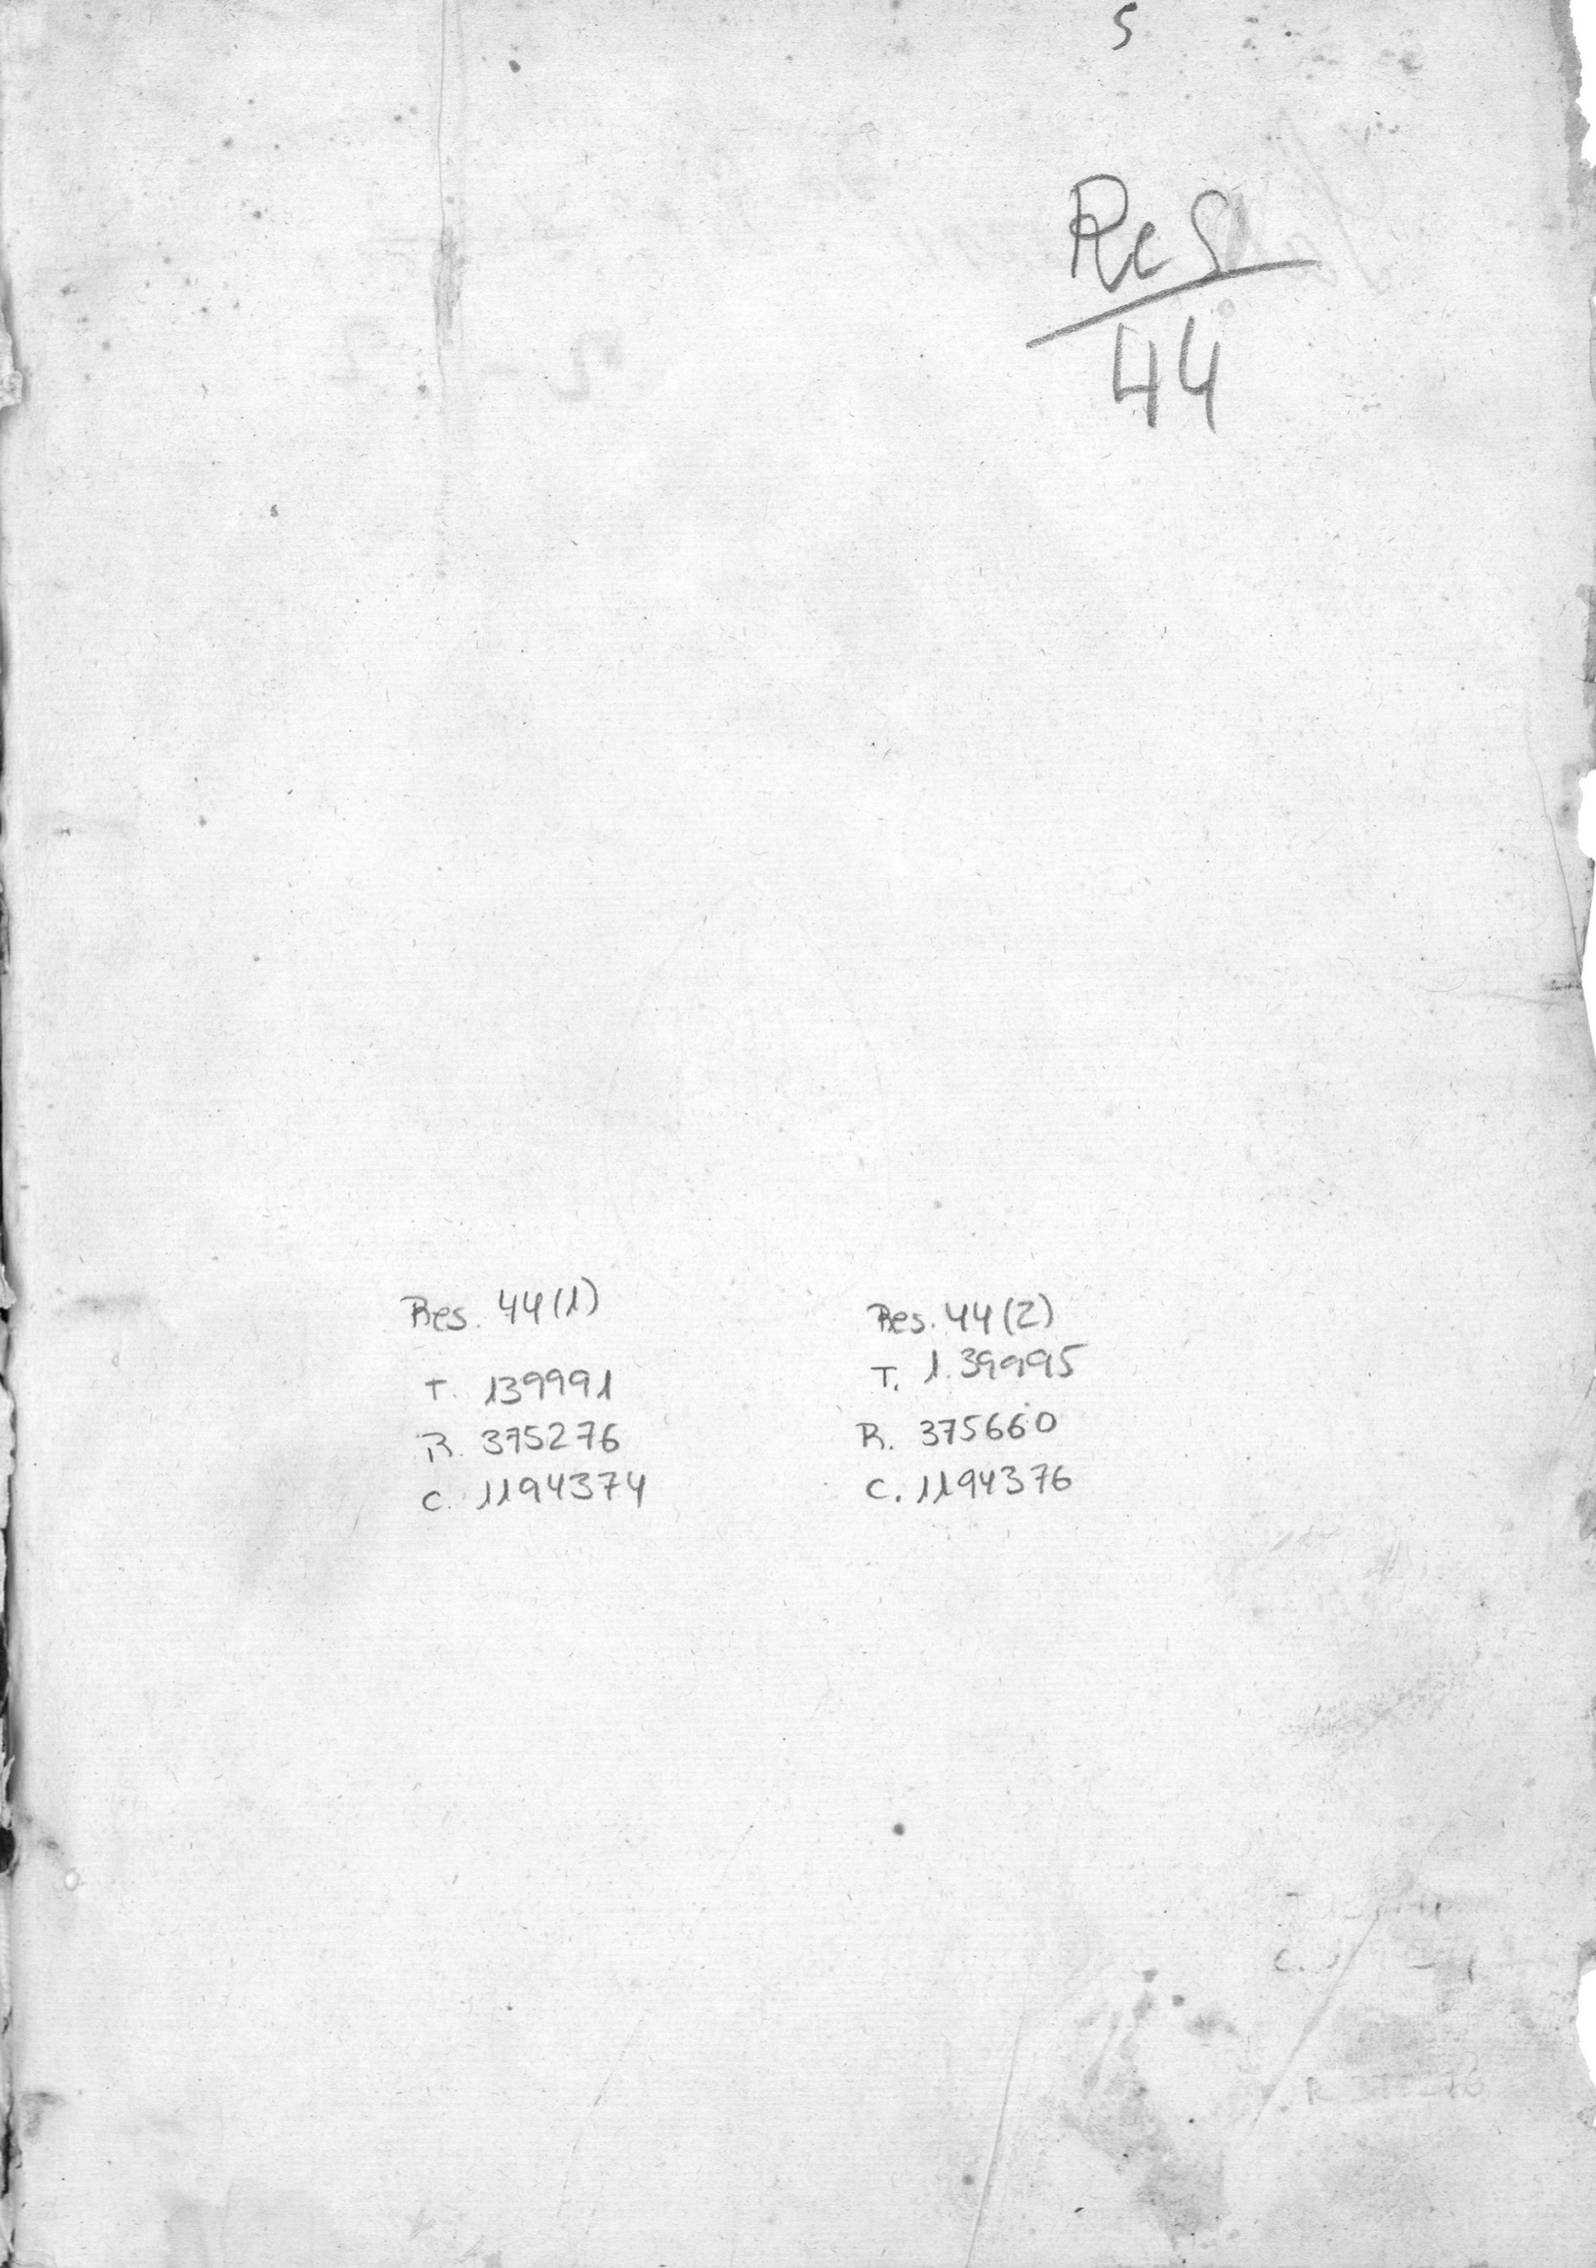 5
Res
44
Res. 44(1)
T. 139991
R. 375276
C. 1194374
Res. 44(2)
T. 139995
R. 375660
C. 1194376